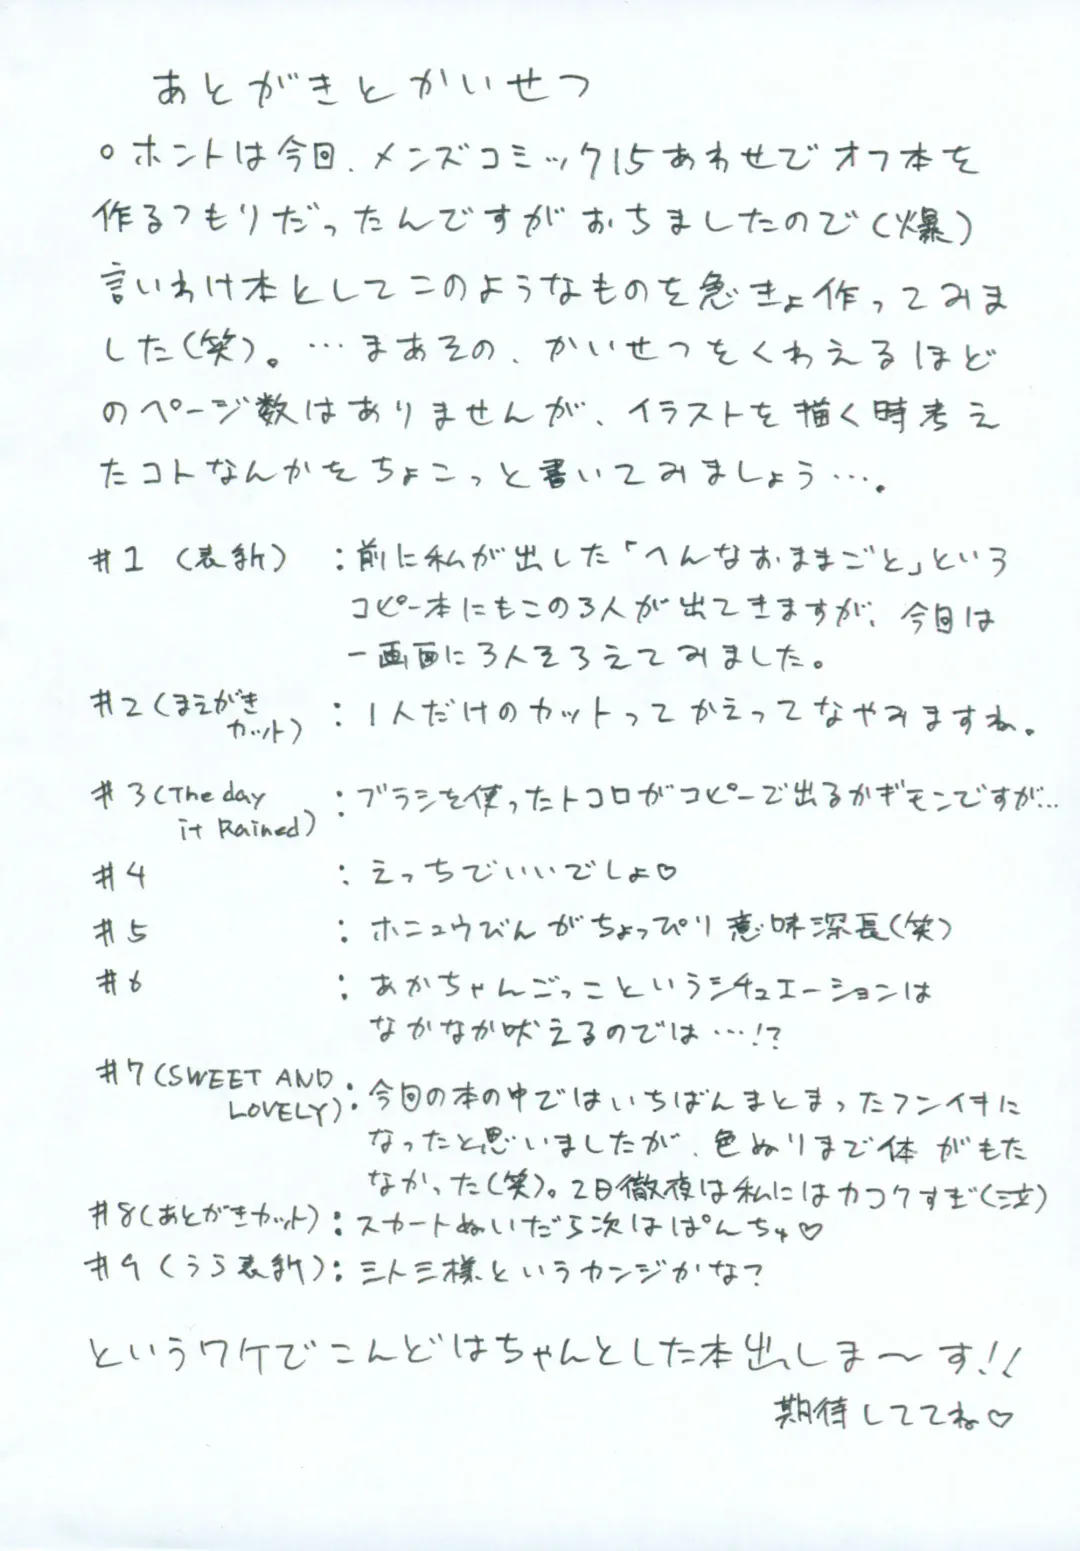 あとがきとかいせつ
○ホントは今回、メンズコミック15あわせでオフ本を
作るつもりだったんですがおちましたので(爆)
言いわけ本としてこのようなものを急きょ作ってみま
した(笑)。…まあその、かいせつをくわえるほど
のページ数はありませんが、イラストを描く時考え
たコトなんかをちょこっと書いてみましょう…。
#1 (表紙) : 前に私が出した「へんなおままごと」という
コピー本にもこの3人が出てきますが、今回は
一画面に3人そろえてみました。
#2(まえがきカット) : 1人だけのカットってかえってなやみますね。
#3(The day it Rained) : ブラシを使ったトコロがコピーで出るかギモンですが…
#4 : えっちでいいでしょ♡
#5 : ホニュウびんがちょっぴり意味深長(笑)
#6 : あかちゃんごっこというシチュエーションは
なかなか吠えるのでは…!?
#7(SWEET AND LOVELY) : 今回の本の中ではいちばんまとまったフンイキに
なったと思いましたが、色ぬりまで体がもた
なかった(笑)。2日徹夜は私にはカコクすぎ(泣)
#8(あとがきカット) : スカートぬいだら次はぱんちゅ♡
#9(うら表紙) : 三人三様というカンジかな?
というワケでこんどはちゃんとした本出しま〜す!!
期待しててね♡